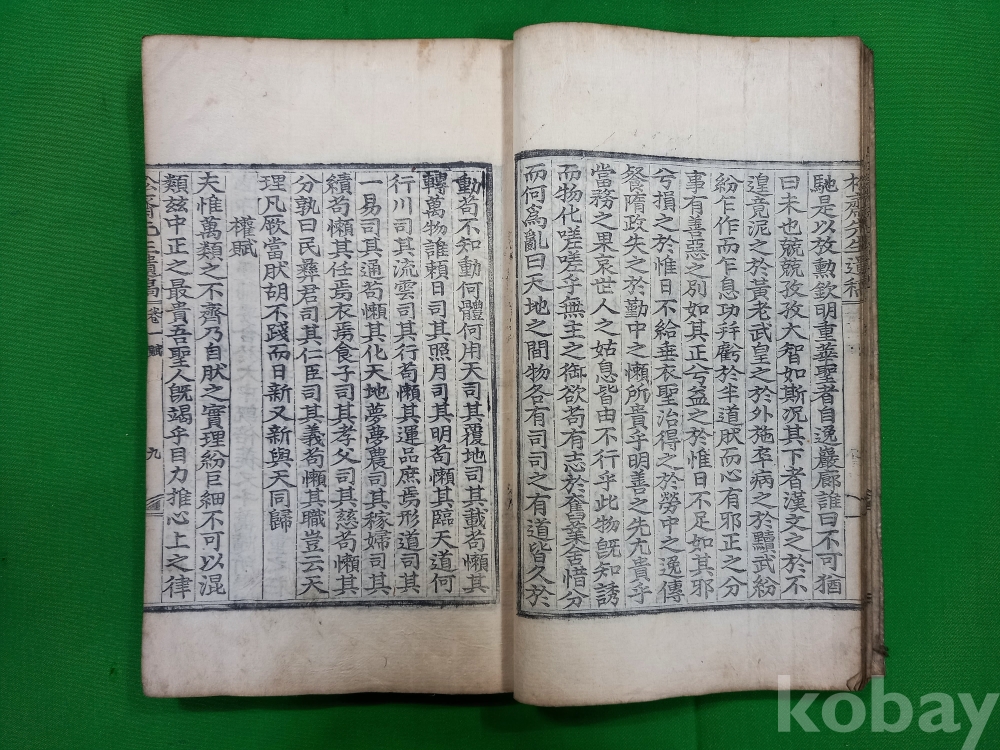 先生遺稿
馳是以放勳欽明重華聖者自逸巖廊誰曰不可猶
曰未也兢兢孜孜大智如斯況其下者漢文之於不
遑竟泥之於黃老武皇之於外施卒病之於黷武紛
紛乍作而乍息功并虧於半道肰而心有邪正之分
事有善惡之別如其正兮益之於惟日不足如其邪
兮損之於惟日不給垂衣聖治得之於勞中之逸傳
餐隋政失之於勤中之懶所貴乎明善之先尢貴乎
當務之果哀世人之姑息皆由不行乎此物旣知誘
而物化嗟嗟乎無主之衙欲苟有志於舊業舍惜分
而何爲亂曰天地之間物各有司司之有道皆久於
動苟不知動何體何用天司其覆地司其載苟懶其
轉萬物誰賴日司其照月司其明苟懶其臨天道何
行川司其流雲司其行苟懶其運品庶焉形道司其
一易司其通苟懶其化天地夢夢農司其稼婦司其
績苟懶其任焉衣焉食子司其孝父司其慈苟懶其
分孰曰民彛君司其仁臣司其義苟懶其職豈云天
理凡厥當肰胡不踐而日新又新與天同歸
權賦
夫惟萬類之不齊乃自肰之實理紛巨細不可以混
類玆中正之最貴吾聖人旣竭乎目力推心上之律
賦
九
kobay